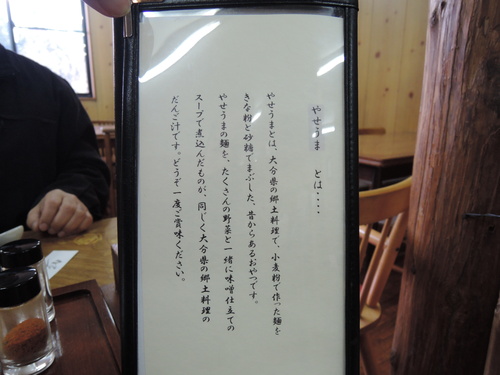 やせうま とは・・・・
やせうまとは、大分県の郷土料理で、小麦粉で作った麺を
きな粉と砂糖でまぶした、昔からあるおやつです。
やせうまの麺を、たくさんの野菜と一緒に味噌仕立ての
スープで煮込んだものが、同じく大分県の郷土料理の
だんご汁です。どうぞ一度ご賞味ください。